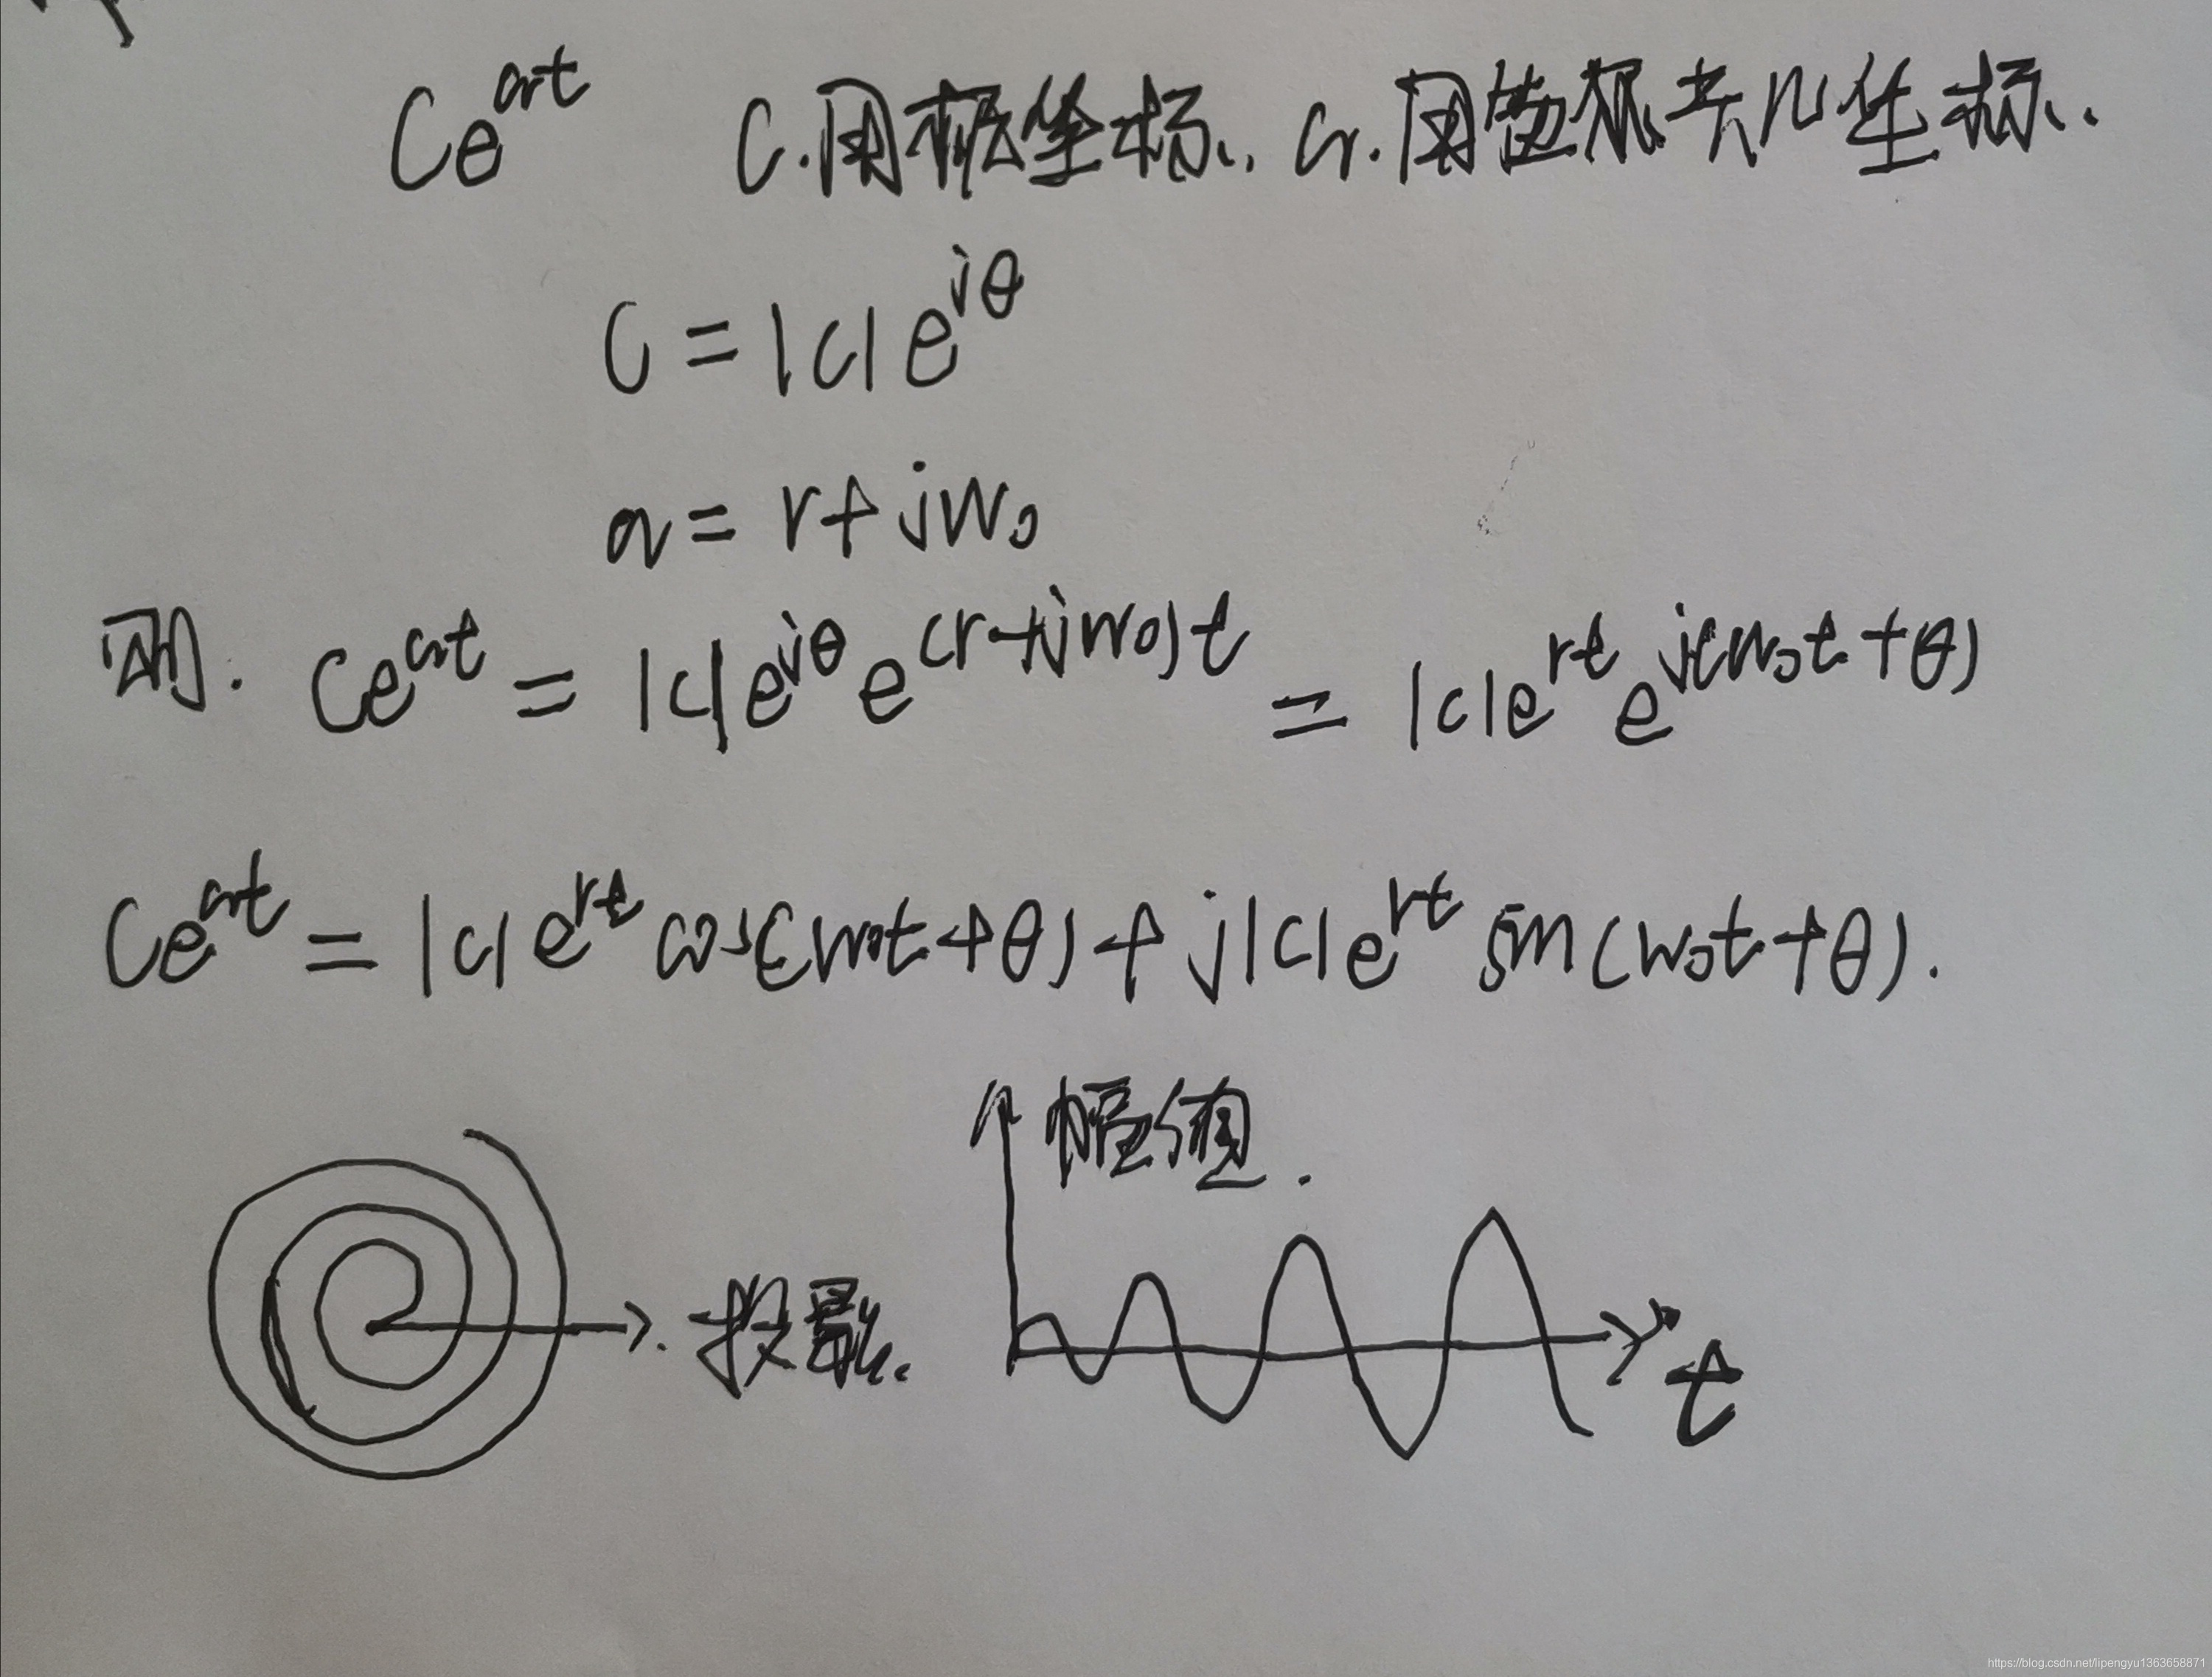 Ce^{at} C.用极坐标. a.用笛卡尔坐标.
C = |C|e^{jθ}
a = r+jw₀
则. Ce^{at} = |C|e^{jθ}e^{(r+jw₀)t} = |C|e^{rt}e^{j(w₀t+θ)}
Ce^{at} = |C|e^{rt}cos(w₀t+θ)+j|C|e^{rt}sin(w₀t+θ).
幅值.
投影.
t
https://blog.csdn.net/lipengyu1363658871